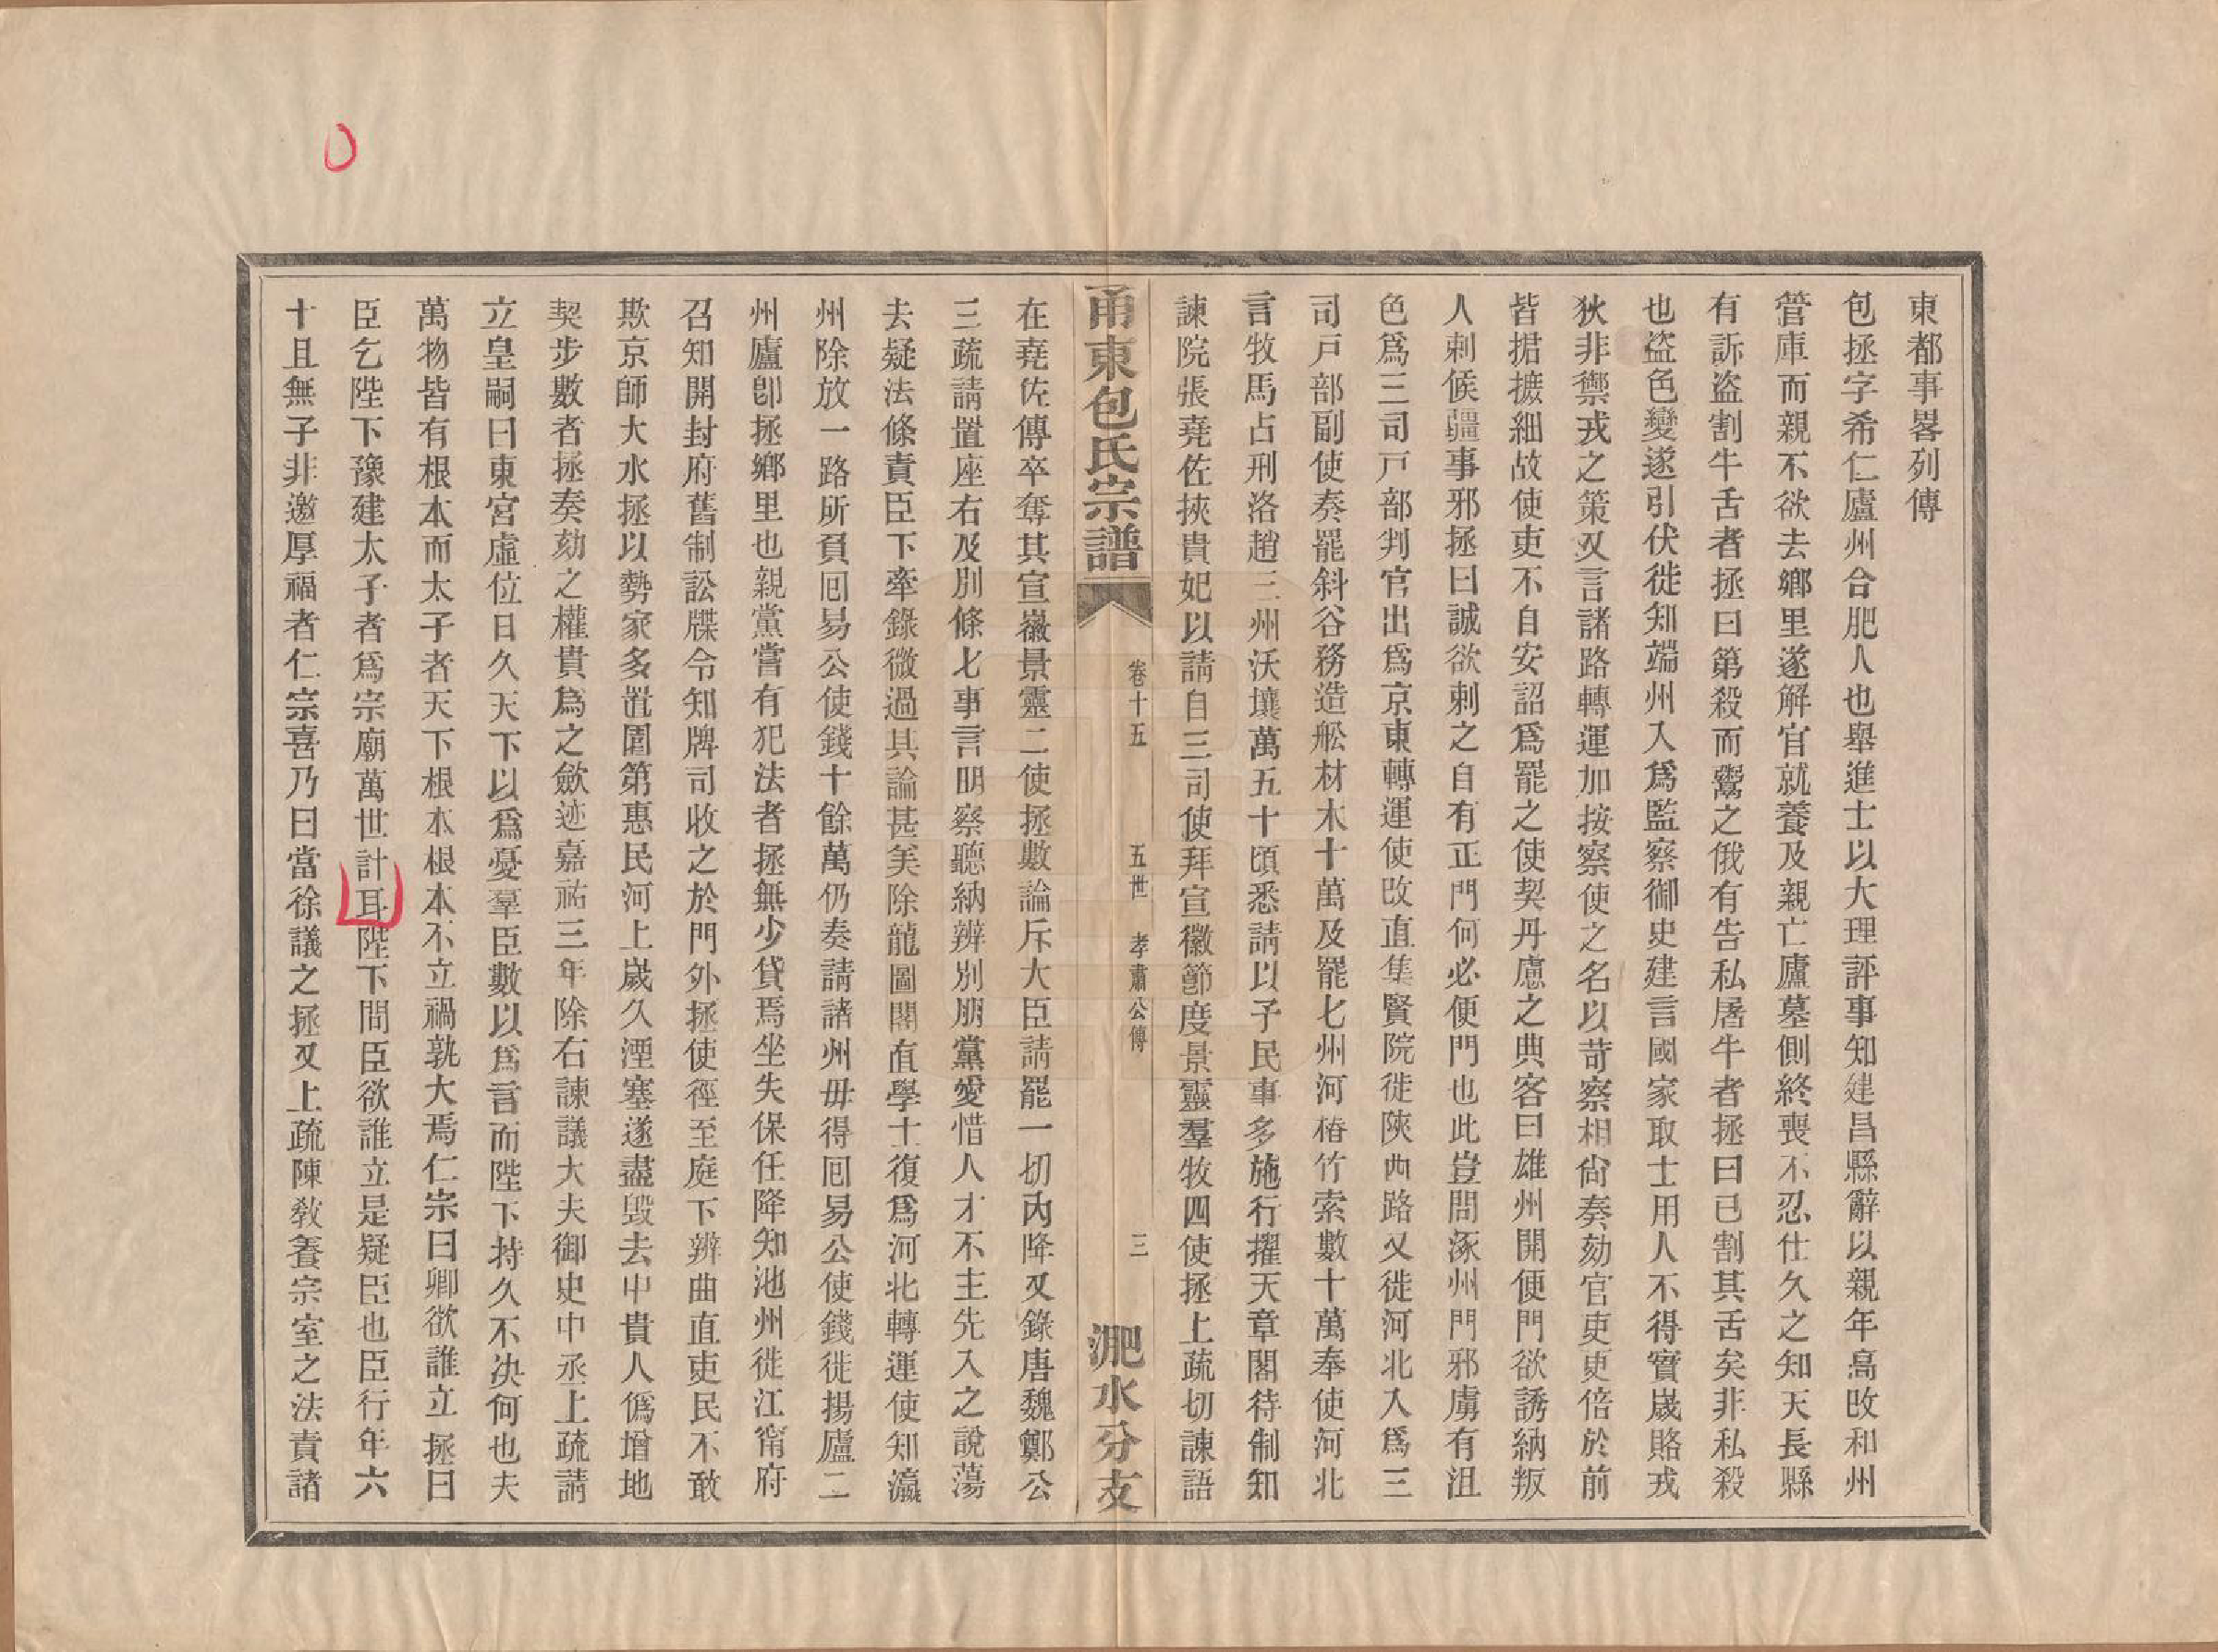 東都事畧列傳
包拯字希仁廬州合肥人也舉進士以大理評事知建昌縣辭以親年高改和州
管庫而親不欲去鄉里遂解官就養及親亡廬墓側終喪不忍仕久之知天長縣
有訴盜割牛舌者拯曰第殺而鬻之俄有告私屠牛者拯曰已割其舌矣非私殺
也盜色變遂引伏徙知端州入爲監察御史建言國家取士用人不得實歲賂戎
狄非禦戎之策又言諸路轉運加按察使之名以苛察相尙奏劾官吏更倍於前
皆掎摭細故使吏不自安詔爲罷之使契丹慮之典客曰雄州開便門欲誘納叛
人刺候疆事邪拯曰誠欲刺之自有正門何必便門也此豈問涿州門邪虜有沮
色爲三司戸部判官出爲京東轉運使改直集賢院徙陝西路又徙河北入爲三
司戸部副使奏罷斜谷務造舩材木十萬及罷七州河椿竹索數十萬奉使河北
言牧馬占刑洛趙三州沃壤萬五十頃悉請以予民事多施行擢天章閣待制知
諫院張堯佐挾貴妃以請自三司使拜宣徽節度景靈羣牧四使拯上疏切諫語
甬東包氏宗譜
卷十五
五世
孝肅公傳
三
淝水分支
在堯佐傳卒奪其宣嶶景靈二使拯數論斥大臣請罷一切內降又錄唐魏鄭公
三疏請置座右及別條七事言明察聽納辨別朋黨愛惜人才不主先入之說蕩
去疑法條責臣下牽錄微過其論甚美除龍圖閣直學士復爲河北轉運使知瀛
州除放一路所負囘易公使錢十餘萬仍奏請諸州毋得囘易公使錢徙揚廬二
州廬卽拯鄉里也親黨嘗有犯法者拯無少貸焉坐失保任降知池州徙江甯府
召知開封府舊制訟牒令知牌司收之於門外拯使徑至庭下辨曲直吏民不敢
欺京師大水拯以勢家多置園第惠民河上歲久湮塞遂盡毀去中貴人僞增地
契步數者拯奏劾之權貴爲之歛迹嘉祐三年除右諫議大夫御史中丞上疏請
立皇嗣曰東宮虛位日久天下以爲憂羣臣數以爲言而陛下持久不决何也夫
萬物皆有根本而太子者天下根本根本不立禍孰大焉仁宗曰卿欲誰立拯曰
臣乞陛下豫建太子者爲宗廟萬世計耳陛下問臣欲誰立是疑臣也臣行年六
十且無子非邀厚福者仁宗喜乃曰當徐議之拯又上疏陳敎養宗室之法責諸